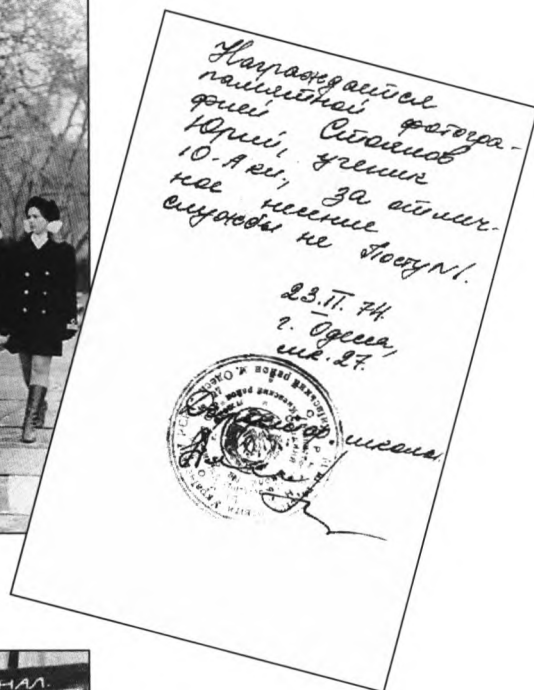 Награждается
памятной фотогра-
фией Стоянов
Юрий, ученик
10-А кл., за отлич-
ное несение
службы не Посту N1.
23.II.74.
г. Одесса,
шк. 27.
Директор школы
НАЛ.